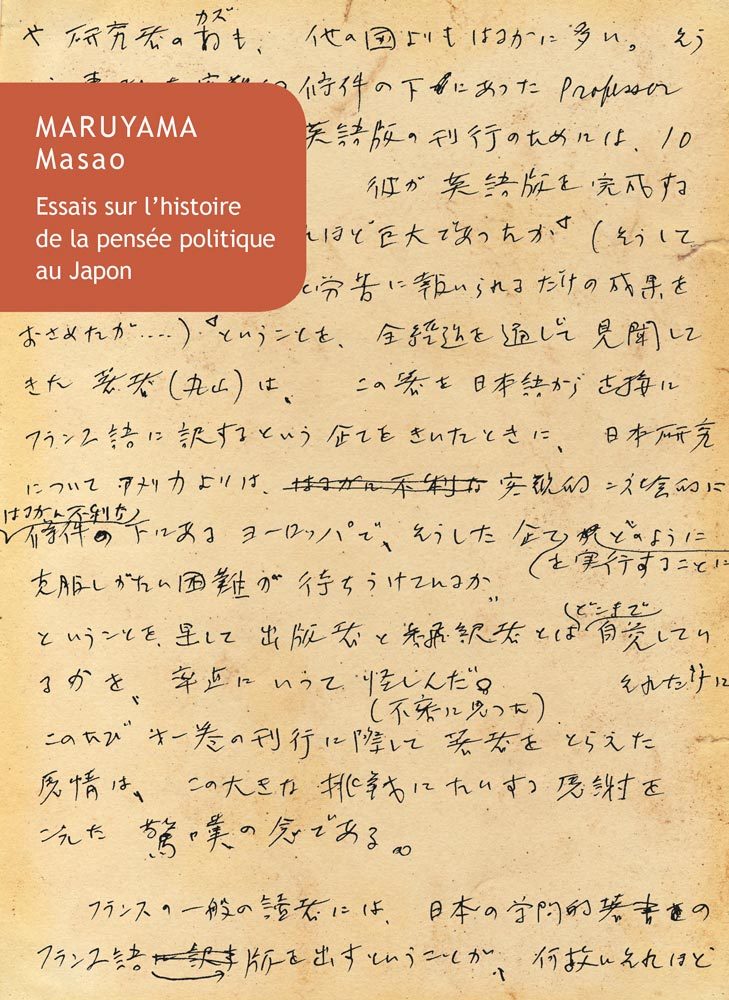 カズ
や研究者のわも、他の国よりもはるかに多い。そう
条件の下にあった Professor
MARUYAMA
Masao
Essais sur l’histoire
de la pensée politique
au Japon
英語版の刊行のためには、10
彼が英語版を完成する
れほど巨大であったか（そうして
と労苦に報いられるだけの成果を
おさめたが‥‥）ということを、全経過を通じて見聞して
きた著者（丸山）は、この著を日本語から直接に
フランス語に訳するという企てをきいたときに、日本研究
について アメリカよりは、はるかに不利な 客観的 社会的に
はるかに不利な
條件の下にあるヨーロッパで、そうした企て どのように
（を実行することに
克服しがたい困難が待ちうけているか
（どこまで
ということを、果して出版者と飜訳者とは自覚してい
るかを、率直にいって怪しんだ。それだけに
（不審に思った）
このたび第一巻の刊行に際して著者をとらえた
感情は、この大きな挑戦にたいする感謝を
こえた驚嘆の念である。
フランスの一般の読者には、日本の学問的著書の
フランス語版を出すということが、何故にそれほど